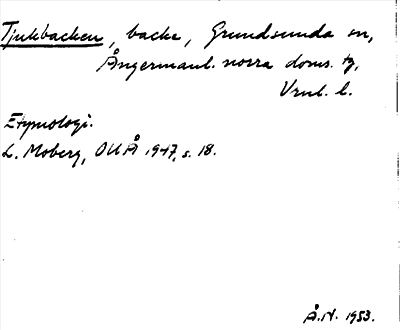 Tjukbacken, backe, Grundsunda sn,
Ångermanl. norra doms. tg,
Vnl. l.
Etymologi.
L. Moberg, OUÅ 1947, s. 18.
Å.N. 1953.